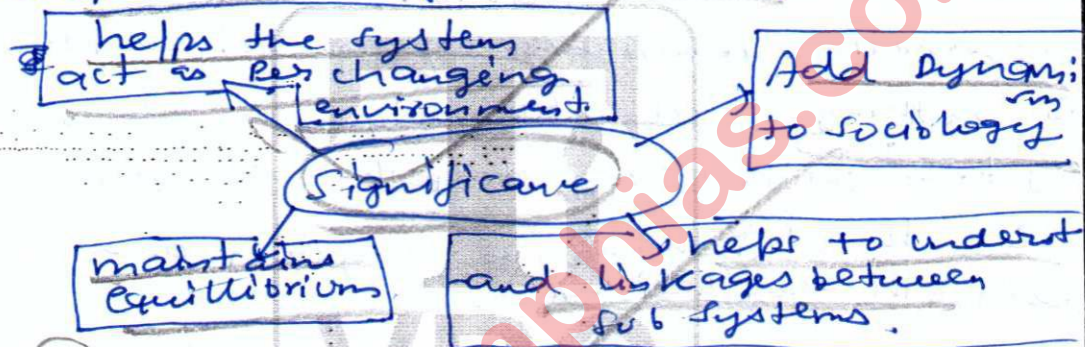 helps the system
act as per changing
environment.
Add Dynami
sm
to sociology
Significance
maintains
equillibrium
helps to underst
and linkages between
sub systems.